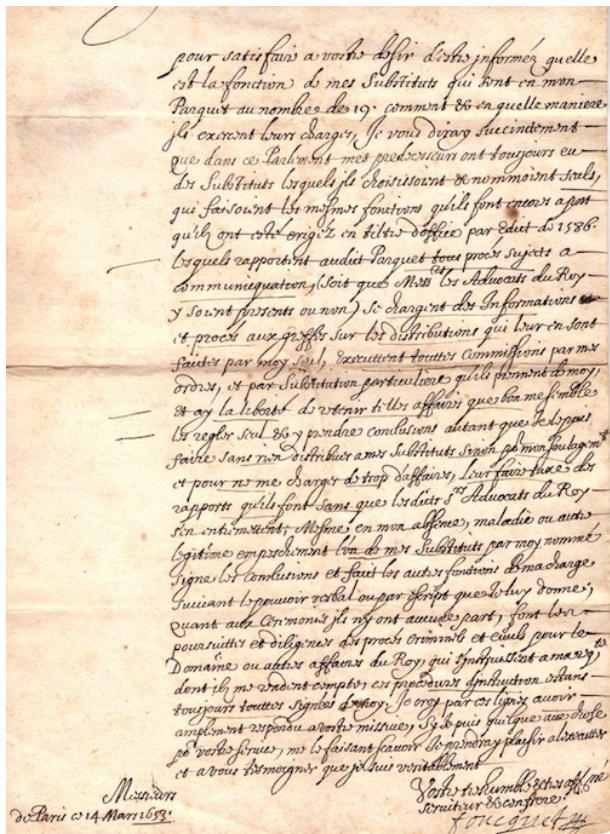 pour satisfaire a vostre desir d'estre informéz quelle
est la fonction de mes Substituts qui sont en mon
Parquet au nombre de 19. comment & en quelle maniere
jls exercent leurs charges, Je vous diray succinctement
que dans ce Parlement mes predecesseurs ont tousjours eu
des Substituts lesquels jls choisissoient & nommoient seuls,
qui faisoient les mesmes fonctions qu'ils font encores apñt
qu'ilz ont esté erigéz en tiltre d'office par Edict de 1586.
lesquels rapportent audict Parquet tous procés sujects a
communicquation, (soit que Mess.rs les Advocats du Roy
y soient presents ou non) Se chargent des Informations
et procés aux greffes sur les distributions qui leur en sont
faictes par moy seul, executtent touttes Commissions par mes
ordres, et par Substitution particuliere qu'ils prennent de moy,
et ay la liberté de retenir telles affaires que bon me semble
les regler seul & y prendre conclusions autant que Je le puis
faire sans rien distribuer a mes Substituts sinon po.r mon soulagem.t
et pour ne me charger de trop d'affaires, leur faire taxe des
rapports qu'ils font sans que lesdicts s.rs Advocats du Roy
s'en entremettent, Mesme en mon absence, maladie ou autre
legitime empeschement l'un de mes Substituts par moy nommé
signe les conclusions et faict les autres fonctions de ma charge
suivant le pouvoir verbal ou par escript que Je luy donne,
quant aux Ceremonies jls n'y ont aucune part, font les
poursuittes et diligences des procés criminels et civils pour le
Domaine ou autres affaires du Roy, qui s'instruissent a ma req.te
dont ils me rendent compte, ces procedures d'instruction estans
tousjours touttes signées de moy. Je croy par ces lignes avoir
amplement respondu a vostre missive, Si Je puis quelque aue chose
po.r vostre service, me le faisant scavoir Je prendray plaisir a l'executter
et a vous tesmoigner que je suis veritablement
Messieurs
Vostre tres humble & tres aff.né
serviteur & confrere.
de Paris ce 14 Mars 1653.
Foucquet